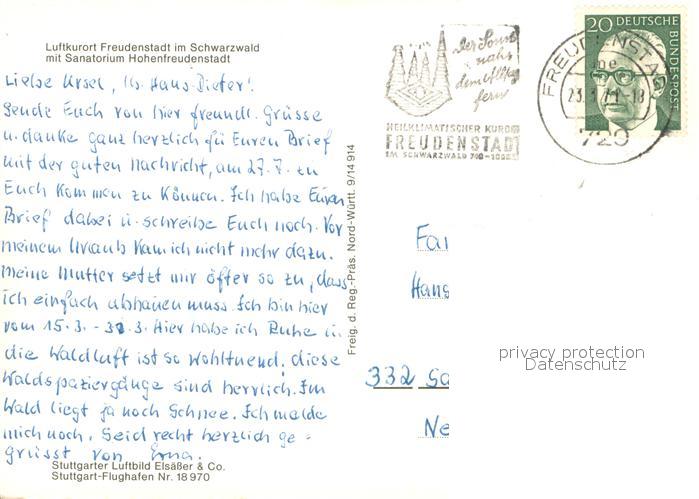 Luftkurort Freudenstadt im Schwarzwald
mit Sanatorium Hohenfreudenstadt
Liebe Ursel, lb. Hans-Dieter!
Sende Euch von hier freundl. Grüsse
u. danke ganz herzlich für Euren Brief
mit der guten Nachricht, am 27.7. zu
Euch kommen zu können. Ich habe Euren
Brief dabei u. schreibe Euch noch. Vor
meinem Urlaub kam ich nicht mehr dazu.
Meine Mutter setzt mir öfter so zu, dass
ich einfach abhauen muss. Ich bin hier
vom 15.3. - 31.3. Hier habe ich Ruhe u.
die Waldluft ist so wohltuend, diese
Waldspaziergänge sind herrlich. Im
Wald liegt ja noch Schnee. Ich melde
mich noch. Seid recht herzlich ge-
grüsst von Erna.
Stuttgarter Luftbild Elsäßer & Co.
Stuttgart-Flughafen Nr. 18 970
Freig. d. Reg.-Präs. Nord-Württ. 9/14 914
der Sonne
nah
dem Alltag
fern
HEILKLIMATISCHER KURORT
FREUDENSTADT
IM SCHWARZWALD
20 DEUTSCHE
BUNDESPOST
FREUDENSTADT
23.3.71-18
729
Fa
Hans
332 Sa
Ne
privacy protection
Datenschutz